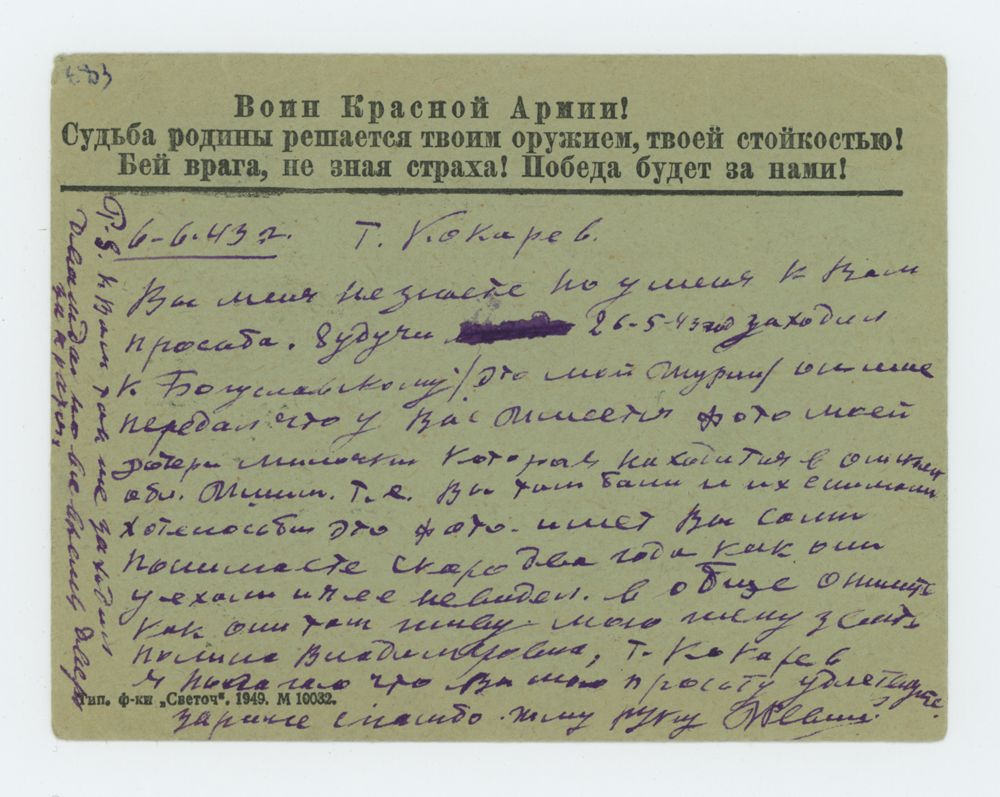 Воин Красной Армии!
Судьба родины решается твоим оружием, твоей стойкостью!
Бей врага, не зная страха! Победа будет за нами!
6-6-43 г. Т. Кокарев.
Вы меня не знаете но у меня к Вам
просьба. Будучи 26-5-43 год заходил
к Богуславскому /это мой шурин/ он мне
передал что у Вас имеется фото моей
дочери милочки которая находится в
обл. т.е. Вы там были и их снимали
хотелось бы это фото. имет Вы сами
понимаете скоро два года как они
уехали и я ее не видел. в обще опишите
как они там живу мою жену звать
Полина Владимировна, Т. Кокарев
я полагаю что Вы мою прозбу удлетворите.
зарание спасибо. жму руку
Тип. ф-ки „Светоч“. 1949. М 10032.
P.S. к Вам там не заходил